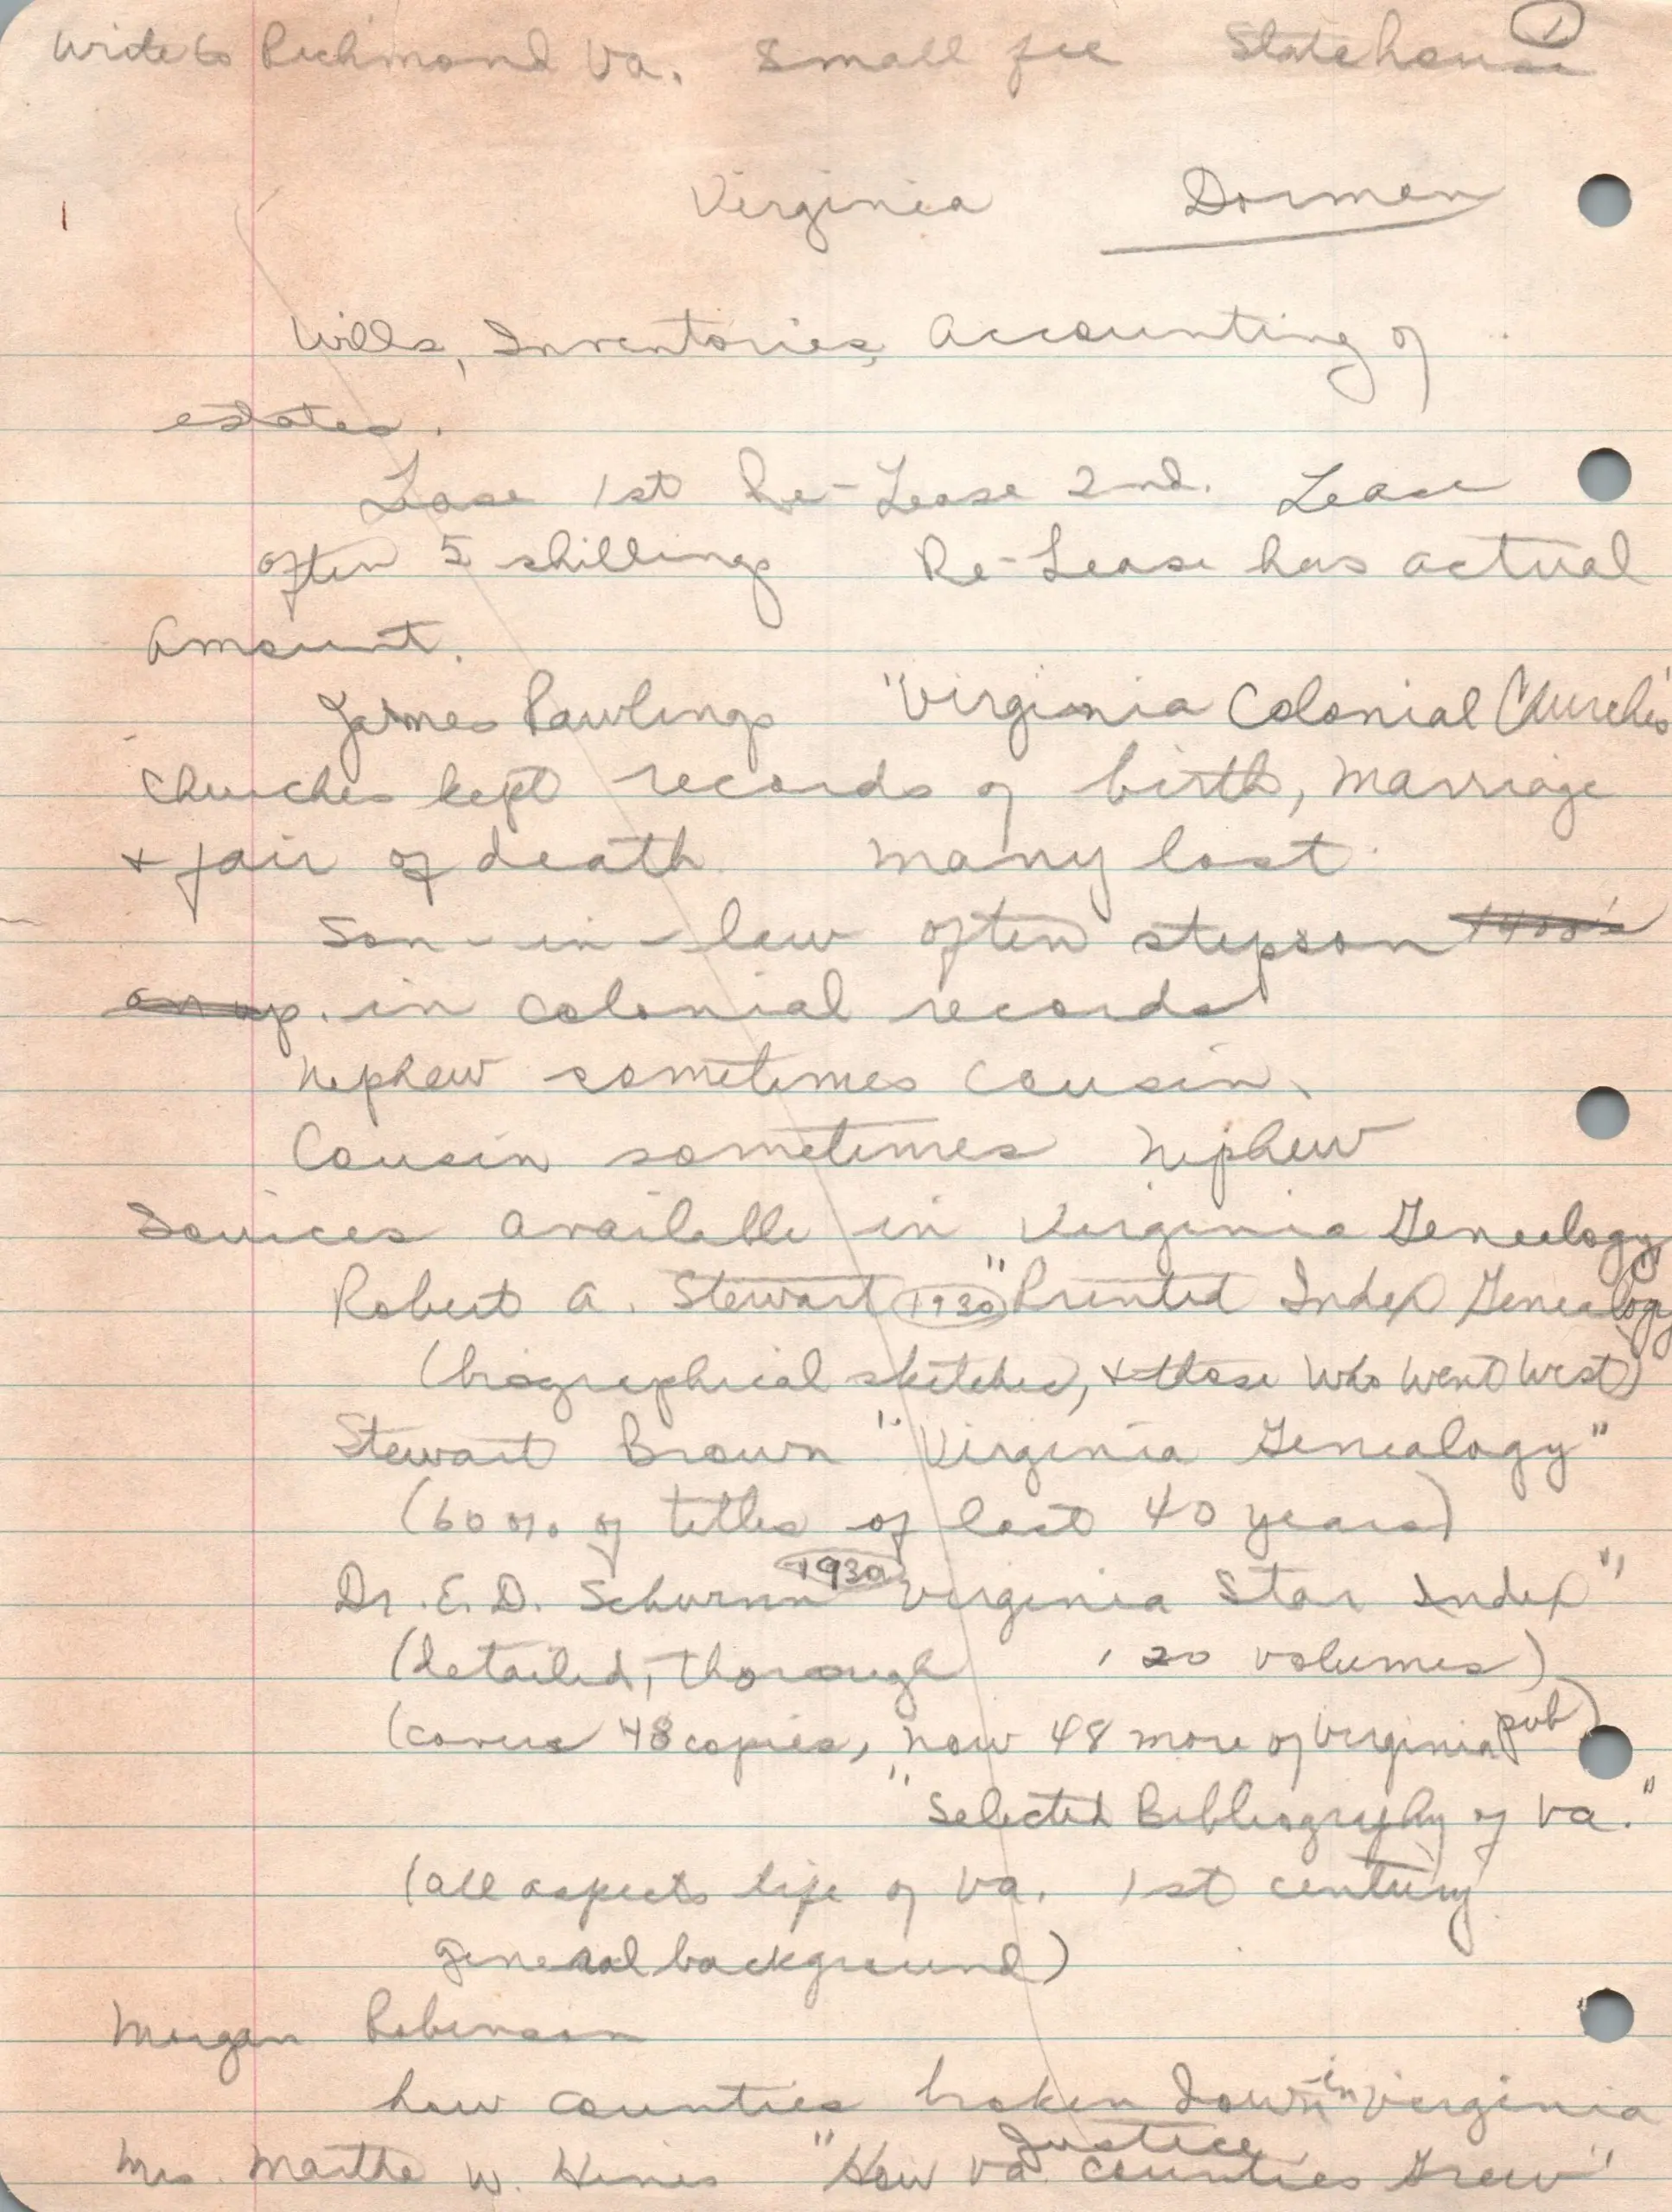 Write to Richmond Va. Small fee Statehouse 1
Virginia Dorman
Wills, Inventories, Accounting of
estates.
Lase 1st Re-Lease 2nd. Lease
often 5 shillings Re-Lease has actual
amount.
James Rawlings "Virginia Colonial Churches"
Churches kept records of birth, marriage
+ fair of death many lost.
Son-in-law often stepson 1400's
in colonial records
Nephew sometimes cousin.
Cousin sometimes nephew
Sources available in Virginia Geneology
Robert A. Stewart 1930 "Printed Index Genealogy"
(biographical sketches, + those who went West)
Stewart Brown "Virginia Genealogy"
(60% of titles of last 40 years)
Dr. E. D. 1930 Virginia Star Index"
(detailed, thorough, 20 volumes)
(covers 48 copies, now 48 more of Virginia pub)
"Selected Bibliography of Va."
(all aspects life of Va. 1st century
general background)
Morgan Robinson
how counties broken down in Virginia
Justice
Mrs. Martha W. Hines "How Va. Counties Grew"